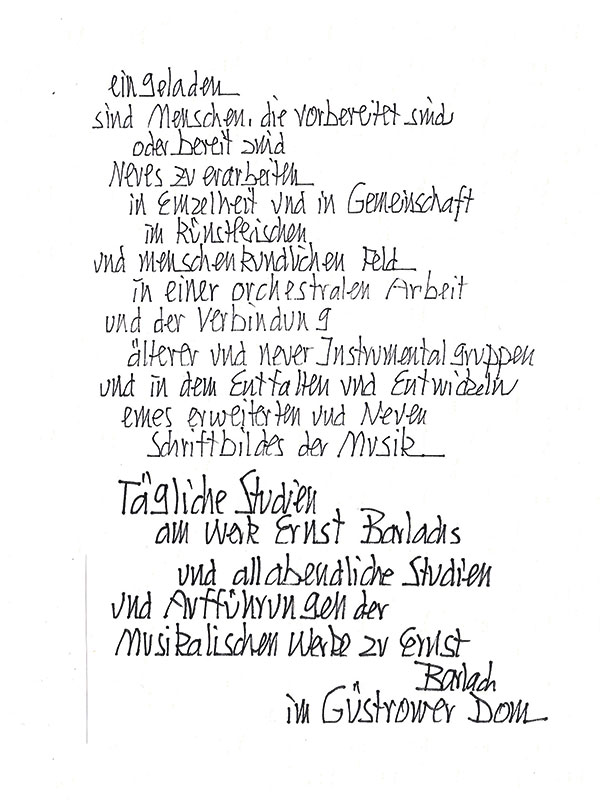 eingeladen
sind Menschen, die vorbereitet sind
oder bereit sind
Neues zu erarbeiten
in Einzelheit und in Gemeinschaft
im künstlerischen
und menschenkundlichen Feld
in einer orchestralen Arbeit
und der Verbindung
älterer und neuer Instrumentalgruppen
und in dem Entfalten und Entwickeln
eines erweiterten und Neuen
Schriftbildes der Musik
Tägliche Studien
am Werk Ernst Barlachs
und allabendliche Studien
und Aufführungen der
Musikalischen Werke zu Ernst
Barlach
im Güstrower Dom